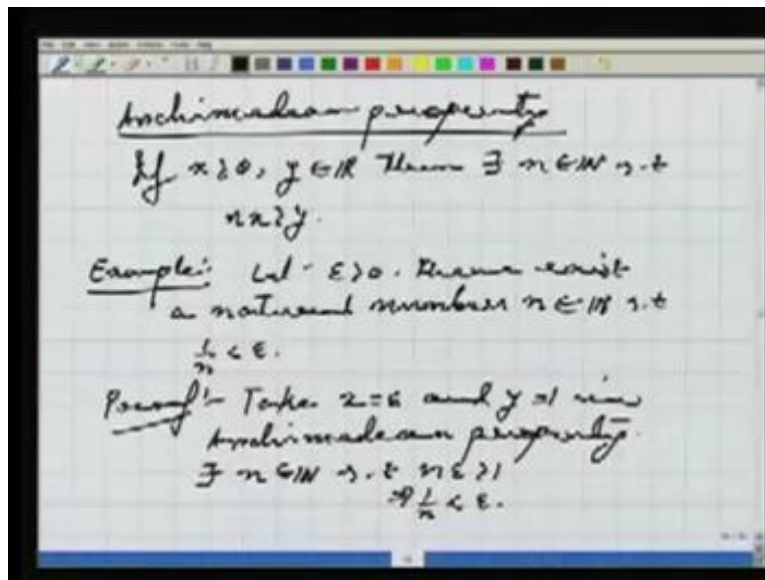 Archimedean property
If x > 0, y ∈ ℝ Then ∃ n ∈ ℕ s.t
nx > y.
Example:- Let ε > 0. There exist
a natural number n ∈ ℕ s.t
1/n < ε.
Proof:- Take x = ε and y = 1 in
Archimedean property.
∃ n ∈ ℕ s.t nε > 1
⇒ 1/n < ε.